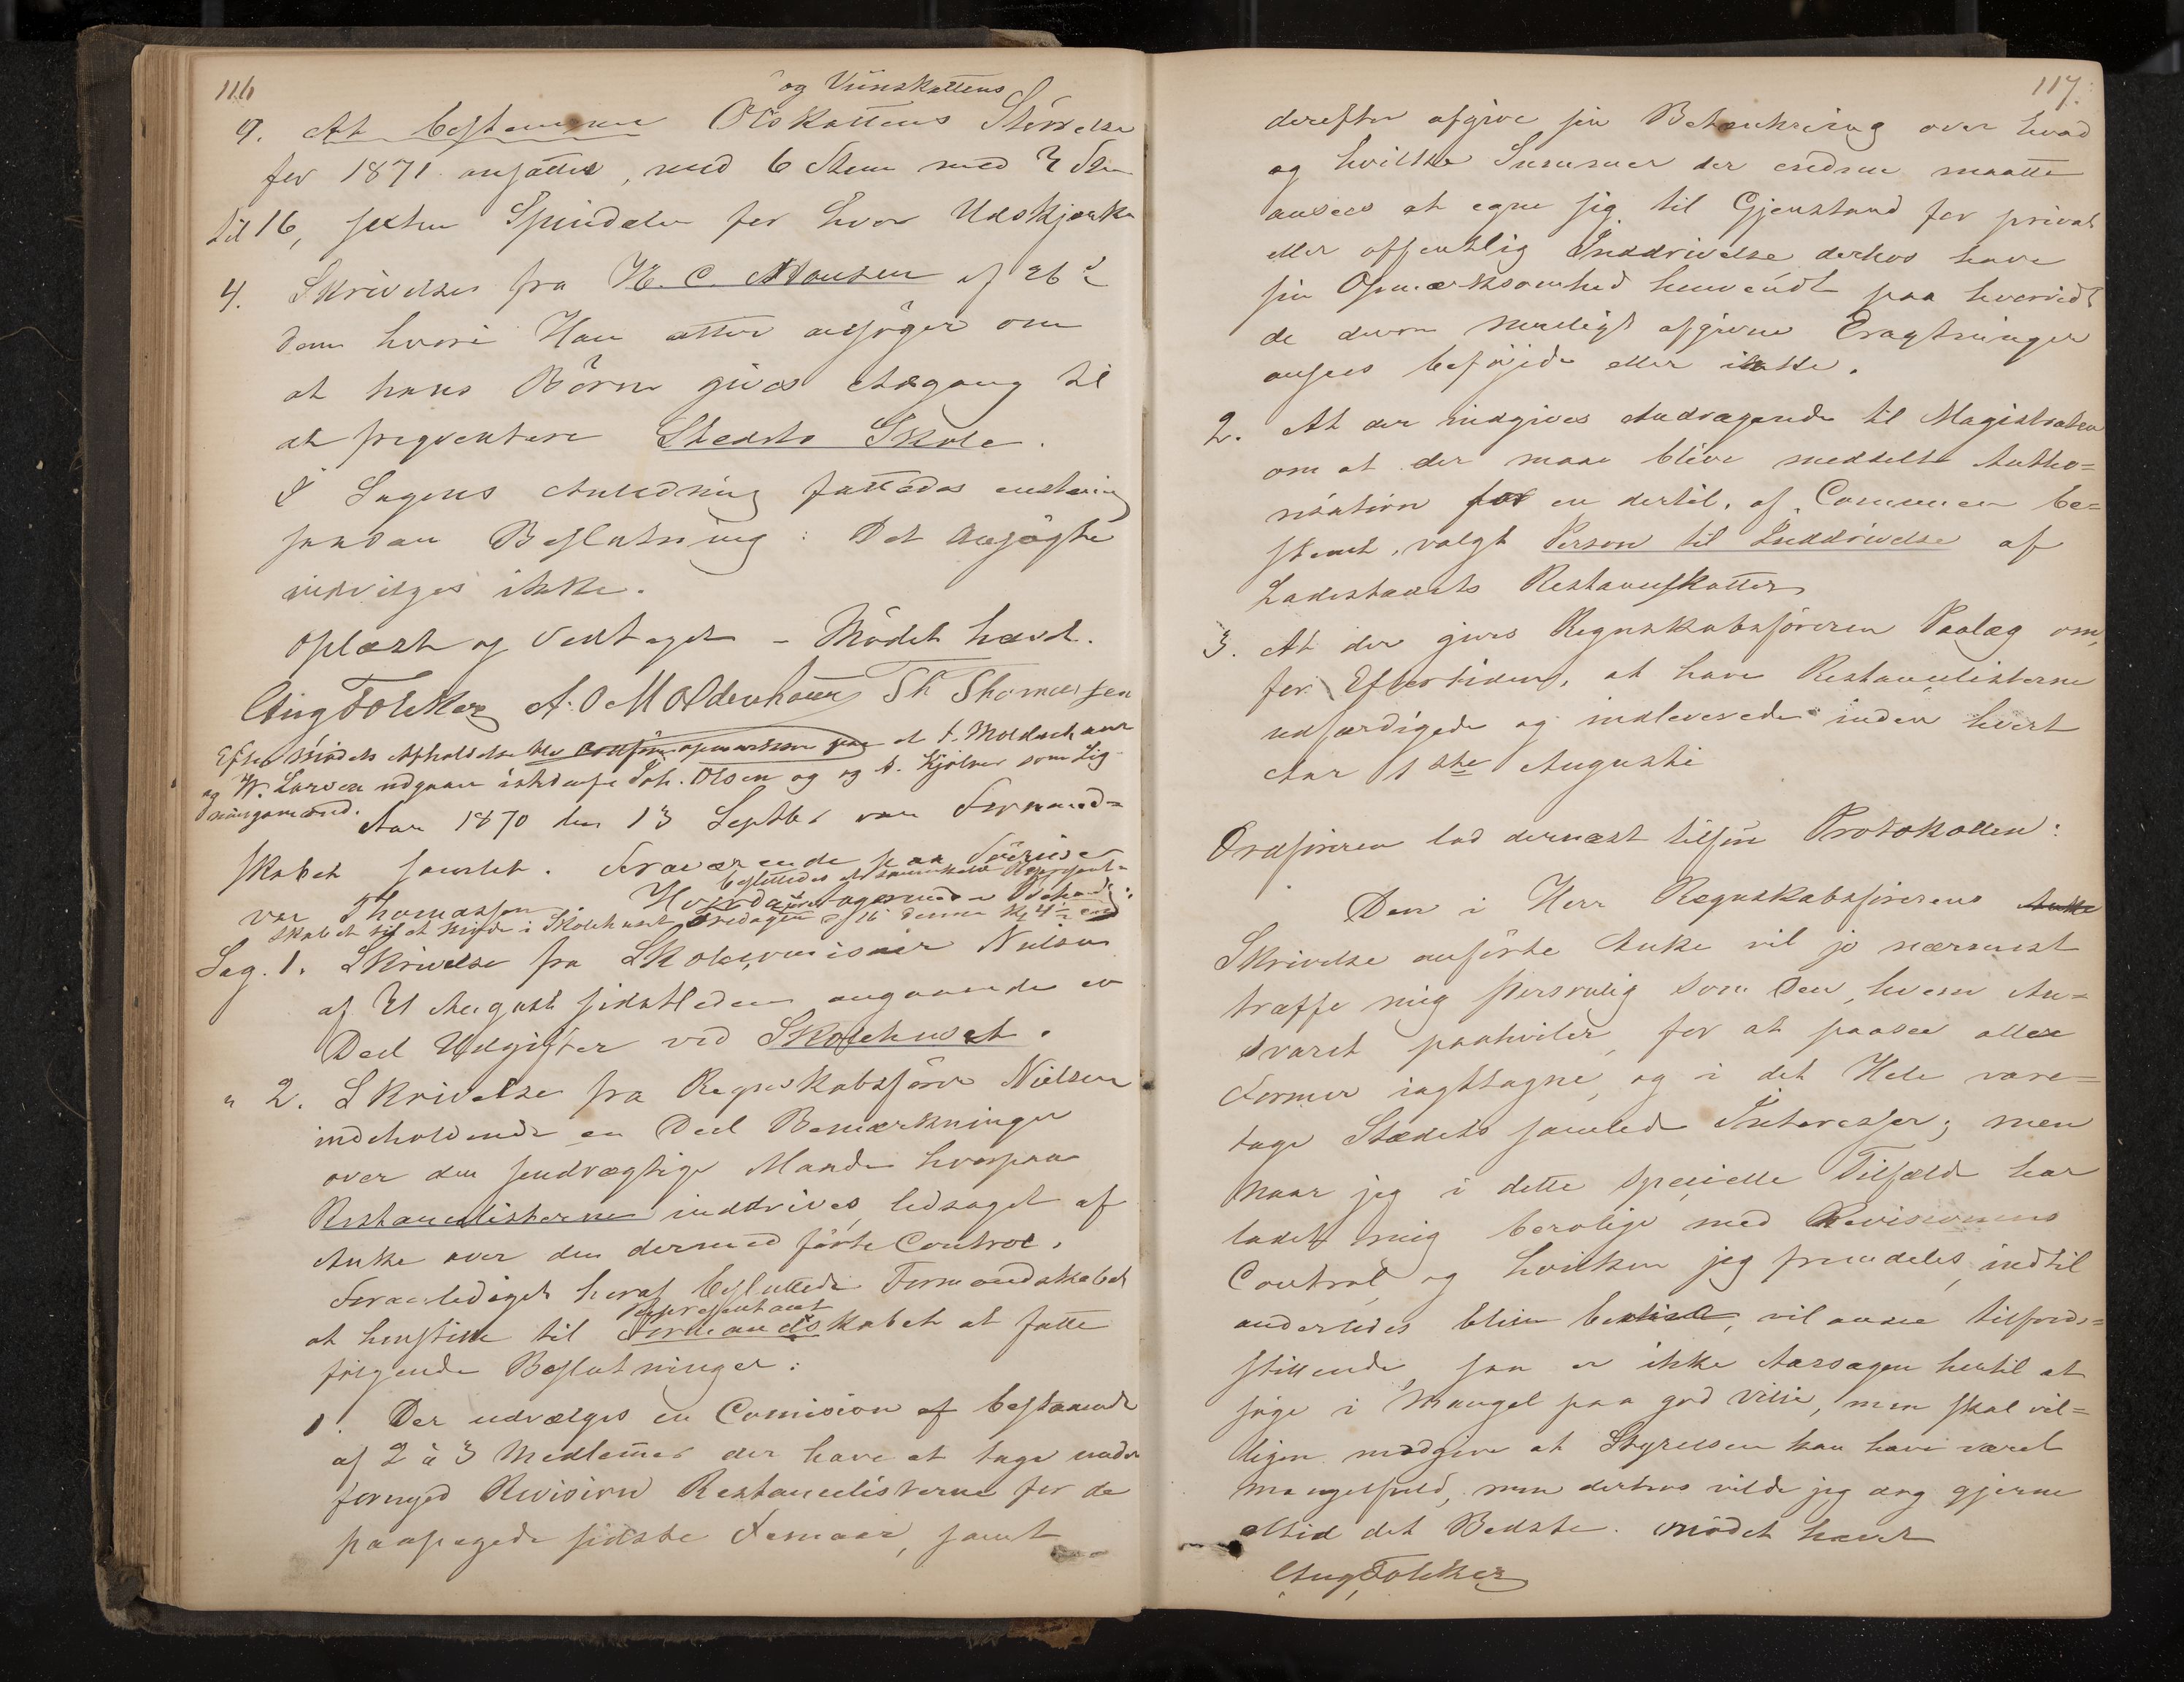 116
og Viinskattens
9. At bestemme Ölskattens Störrelse
for 1871 ansattes, med 6 Stem mod 3 Stm
til 16, sexten Spindaler for hver Udskjænker
4. Skrivelse fra H. C. Hansen af 26d
dem hvori Han atter ansöger om
at hans Börn gives Adgang til
at freqventere Stedets Skole.
I Sagens Anledning fattedes enstemig
saadan Beslutning: Det Ansögte
indvilges ikke.
Oplæst og Vedtaget – Mödet hævet.
Aug Foleker A. O. Moldenhauer Th Thomassen
Efter Mödets Afholdelse blev at A. Moldenhauer
og W. Larsen udgaar istedenfor Joh. Olsen og og A. Kjölner som Lig-
ningsmænd.
Aar 1870 den 13 Septbr var Formand=
skabet samlet. Fraværende paa Reise
var Thomassen. Hvorda foretages nedenstaaende:
besluttedes at sammenkalde Repræsent=
skabet til et Möde i Skolehuset Fredagen d 16 dennes Kl 4½ em
Sag. 1. Skrivelse fra Skolecomisair Nielsen
af 31 August sidstleden angaaende en
Deel Udgifter ved Skolehuset.
" 2. Skrivelse fra Regnskabsförer Nielsen
indeholdende en Deel Bemærkninger
over den sendrægtige Maade hvorpaa
Restancelisterne inddrives, ledsaget af
Anke over den dermed förte Controll.
Foranlediget heraf besluttede Formandskabet
Repræsentant
at henstille til Formandskabet at fatte
fölgende Beslutninger:
1. Der udvælges en Comision af bestaaende
af 2 à 3 Medlemer der have at tage under
fornyed Revision Restancelisterne for de
paapegede sidste Femaar, samt
117.
derefter afgive sin Betænkning over hvad
og hvilke Summer der endnu maatte
ansees at egne sig til Gjenstand for privat
eller offentlig Inddrivelse derhos have
sin Opmærksomhed henvendt paa hvorvidt
de derom meeligt afgivne Eragtninger
ansees beföjede eller ikke.
2. At der indgives Andragende til Magistraten
om at der maae blive meddelt Autho=
risation for en dertil, af Communen be=
stemt, valgt Person til Inddrivelse af
Ladestædets Restanceskatter
3. At der gives Regnskabsföreren Paalæg om,
for Eftertiden, at have Restancelisterne
udfærdigede og indleverede inden hvert
Aar 1ste Augusti
Ordföreren lod dernæst tilföie Protokollen:
Den i Herr Regnskabsförerens Anke
Skrivelse anförte Anke vil jo nærmest
træffe mig personlig som Den, hvem An=
svaret paahviler, for at paasee alle
Former iagttagne, og i det Hele vare=
tage Stædets samlede Interesser; men
naar jeg i dette specielle Tilfælde har
ladet mig berolige med Revisionens
Control, og hvilken jeg fremdeles, indtil
anderledes bliver bevist, vil ansee tilfreds=
stillende, saa er ikke Aarsagen hertil at
söge i Mangel paa god Villie, men skal vil=
ligen medgive at Styrelsen kan have været
mangelfuld, men derhos vilde jeg dog gjerne
altid det Bedste. Mödet hævet
Aug Foleker